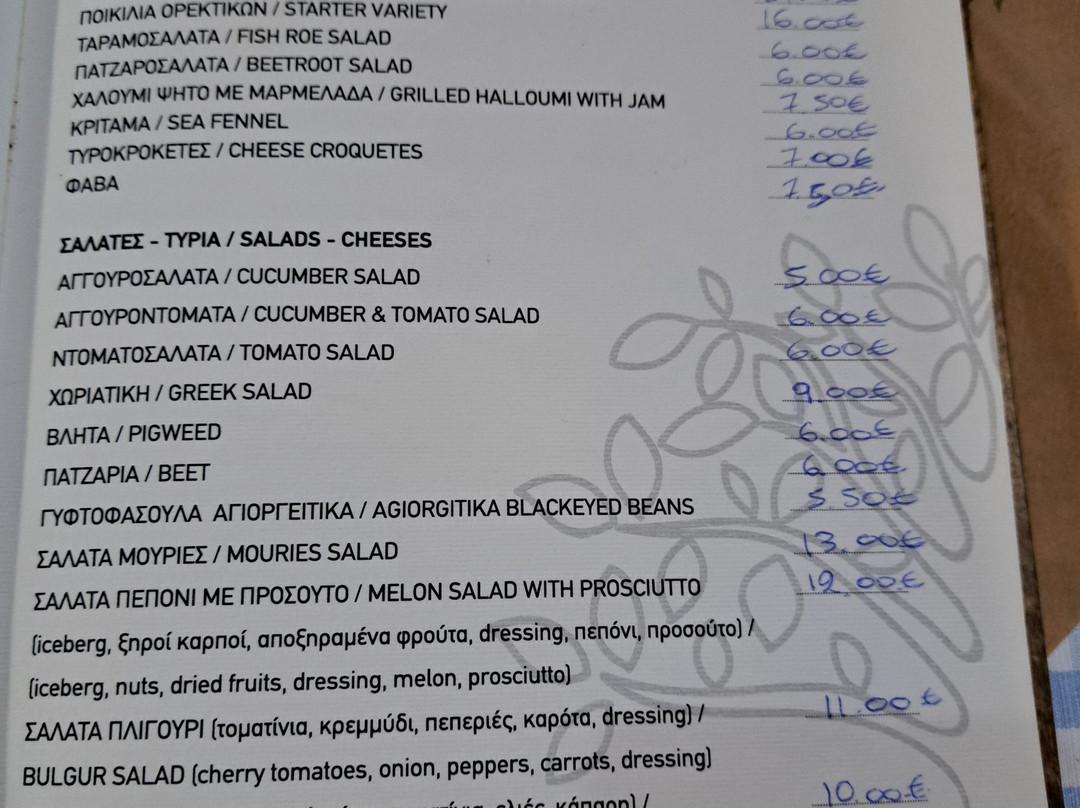 ΠΟΙΚΙΛΙΑ ΟΡΕΚΤΙΚΩΝ / STARTER VARIETY 16.00€
ΤΑΡΑΜΟΣΑΛΑΤΑ / FISH ROE SALAD 6.00€
ΠΑΤΖΑΡΟΣΑΛΑΤΑ / BEETROOT SALAD 6.00€
ΧΑΛΟΥΜΙ ΨΗΤΟ ΜΕ ΜΑΡΜΕΛΑΔΑ / GRILLED HALLOUMI WITH JAM 7.50€
ΚΡΙΤΑΜΑ / SEA FENNEL 6.00€
ΤΥΡΟΚΡΟΚΕΤΕΣ / CHEESE CROQUETES 7.00€
ΦΑΒΑ 7.50€
ΣΑΛΑΤΕΣ - ΤΥΡΙΑ / SALADS - CHEESES
ΑΓΓΟΥΡΟΣΑΛΑΤΑ / CUCUMBER SALAD 5.00€
ΑΓΓΟΥΡΟΝΤΟΜΑΤΑ / CUCUMBER & TOMATO SALAD 6.00€
ΝΤΟΜΑΤΟΣΑΛΑΤΑ / TOMATO SALAD 6.00€
ΧΩΡΙΑΤΙΚΗ / GREEK SALAD 9.00€
ΒΛΗΤΑ / PIGWEED 6.00€
ΠΑΤΖΑΡΙΑ / BEET 6.00€
ΓΥΦΤΟΦΑΣΟΥΛΑ ΑΓΙΟΡΓΕΙΤΙΚΑ / AGIORGITIKA BLACKEYED BEANS 5.50€
ΣΑΛΑΤΑ ΜΟΥΡΙΕΣ / MOURIES SALAD 13.00€
ΣΑΛΑΤΑ ΠΕΠΟΝΙ ΜΕ ΠΡΟΣΟΥΤΟ / MELON SALAD WITH PROSCIUTTO 12.00€
(iceberg, ξηροί καρποί, αποξηραμένα φρούτα, dressing, πεπόνι, προσούτο) /
(iceberg, nuts, dried fruits, dressing, melon, prosciutto)
ΣΑΛΑΤΑ ΠΛΙΓΟΥΡΙ (τοματίνια, κρεμμύδι, πεπεριές, καρότα, dressing) / 11.00€
BULGUR SALAD (cherry tomatoes, onion, peppers, carrots, dressing)
κάπαρη) / 10.00€